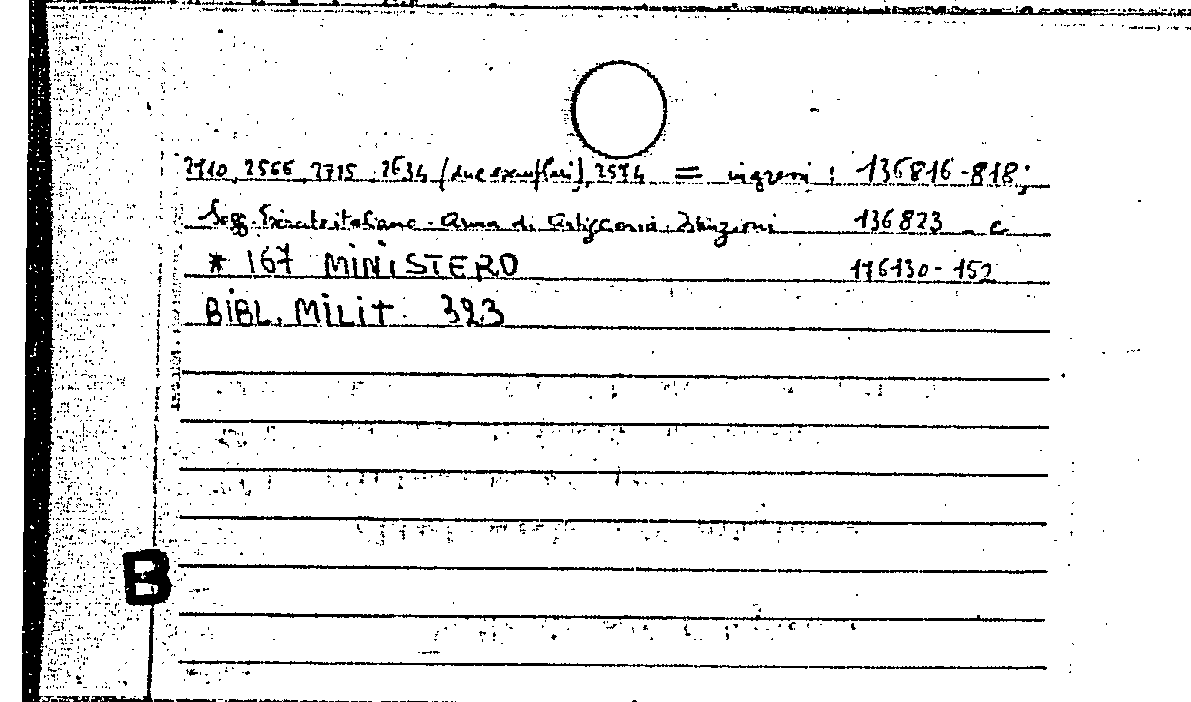 2710, 2566, 2715, 2634 (due exemplari), 2574 = ingressi : 136816-818;
Sogg. Esercito italiano - Arma di Artiglieria - Istruzioni 136823 e
* 167 MINISTERO 176130-152
BIBL. MILIT. 323
B